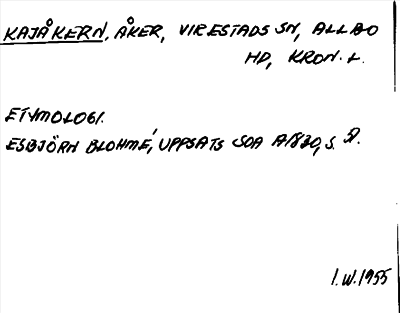 KAJÅKERN, ÅKER, VIRESTADS SN, ALLBO
HD, KRON. L.
ETYMOLOGI.
ESBJÖRN BLOHMÉ, UPPSATS SOA A1820, S.
I.W. 1955